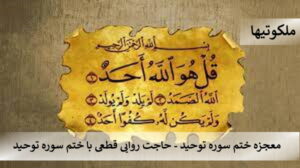 ملکوتیها
بِسْمِ اللَّهِ الرَّحْمَنِ الرَّحِيمِ
قُلْ هُوَ اللَّهُ أَحَدٌ
اللَّهُ الصَّمَدُ لَمْ يَلِدْ وَلَمْ يُولَدْ
وَلَمْ يَكُن لَّهُ كُفُوًا أَحَدٌ
معجزه ختم سوره توحید - حاجت روایی قطعی با ختم سوره توحید